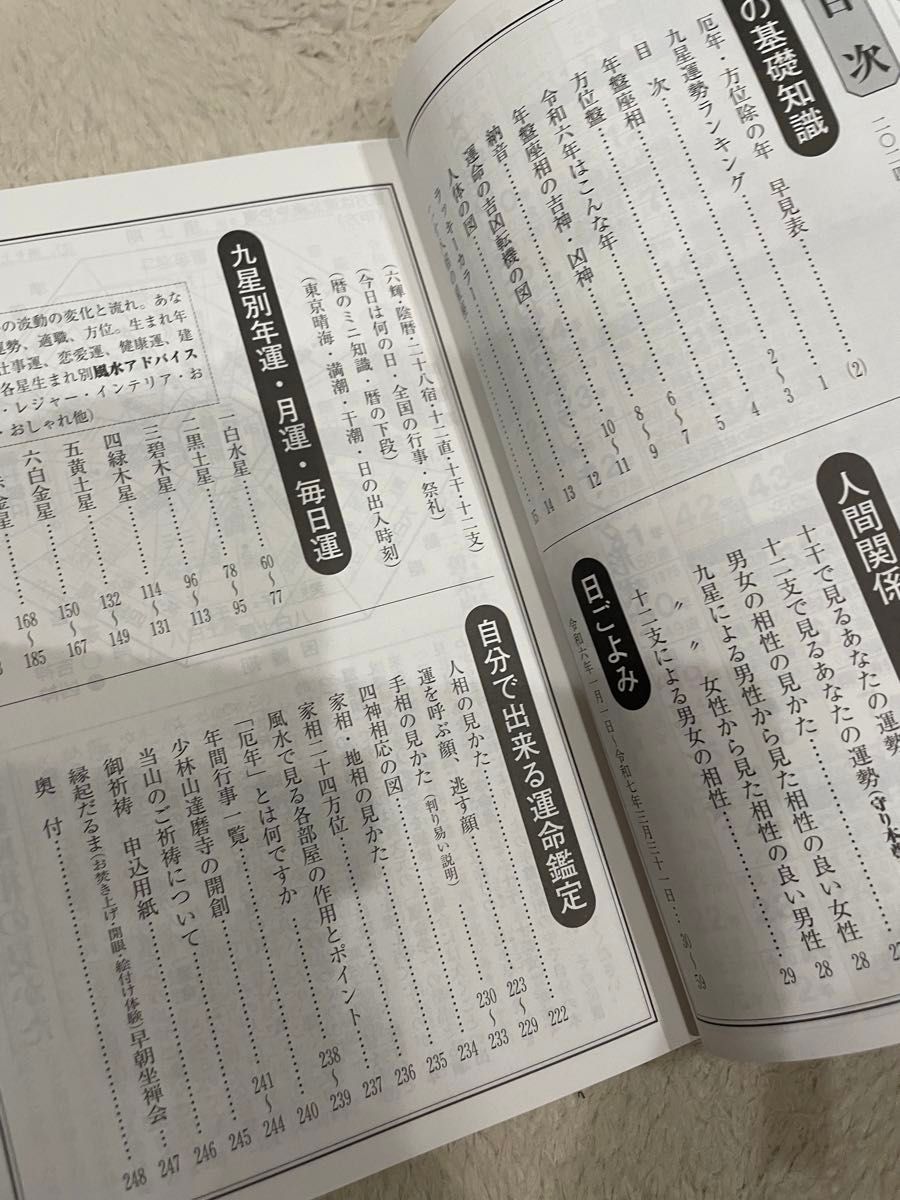 目次
二〇二
の基礎知識
厄年・方位除の年 早見表……(2)
九星運勢ランキング……1
目次……2〜3
年盤座相……4
方位盤……5
令和六年はこんな年……6〜7
年盤座相の吉神・凶神……8〜9
納音……11
運命の吉凶転機の図……10〜12
人体の図……13
ラッキーカラー……14
15
人間関係
十干で見るあなたの運勢
十二支で見るあなたの運勢(守り本尊
男女の相性の見かた……27
九星による男性から見た相性の良い女性……28
〃 女性から見た相性の良い男性……28
十二支による男女の相性……29
日ごよみ
令和六年一月一日〜令和七年三月三十一日…30〜59
(六輝・陰暦・二十八宿・十二直・十干・十二支)
(今日は何の日・全国の行事・祭礼)
(暦のミニ知識 暦の下段)
(東京晴海・満潮・干潮・日の出入時刻)
九星別年運・月運・毎日運
の波動の変化と流れ。あな
運勢、適職、方位。生まれ年
仕事運、恋愛運、健康運、建
各星生まれ別風水アドバイス
・レジャー・インテリア・お
・おしゃれ他)
一白水星……60〜77
二黒土星……78〜95
三碧木星……96〜113
四緑木星……114〜131
五黄土星……132〜149
六白金星……150〜167
金星……168〜185
自分で出来る運命鑑定
人相の見かた……222
運を呼ぶ顔、逃す顔……223〜229
手相の見かた(判り易い説明)……230〜233
四神相応の図……234
家相・地相の見かた……235
家相二十四方位……236
風水で見る各部屋の作用とポイント……237
「厄年」とは何ですか……238〜239
年間行事一覧……240
少林山達磨寺の開創……241〜244
当山のご祈祷について……245
御祈祷 申込用紙……246
縁起だるま(お焚き上げ・開眼・絵付け体験)早朝坐禅会……247
奥付……248